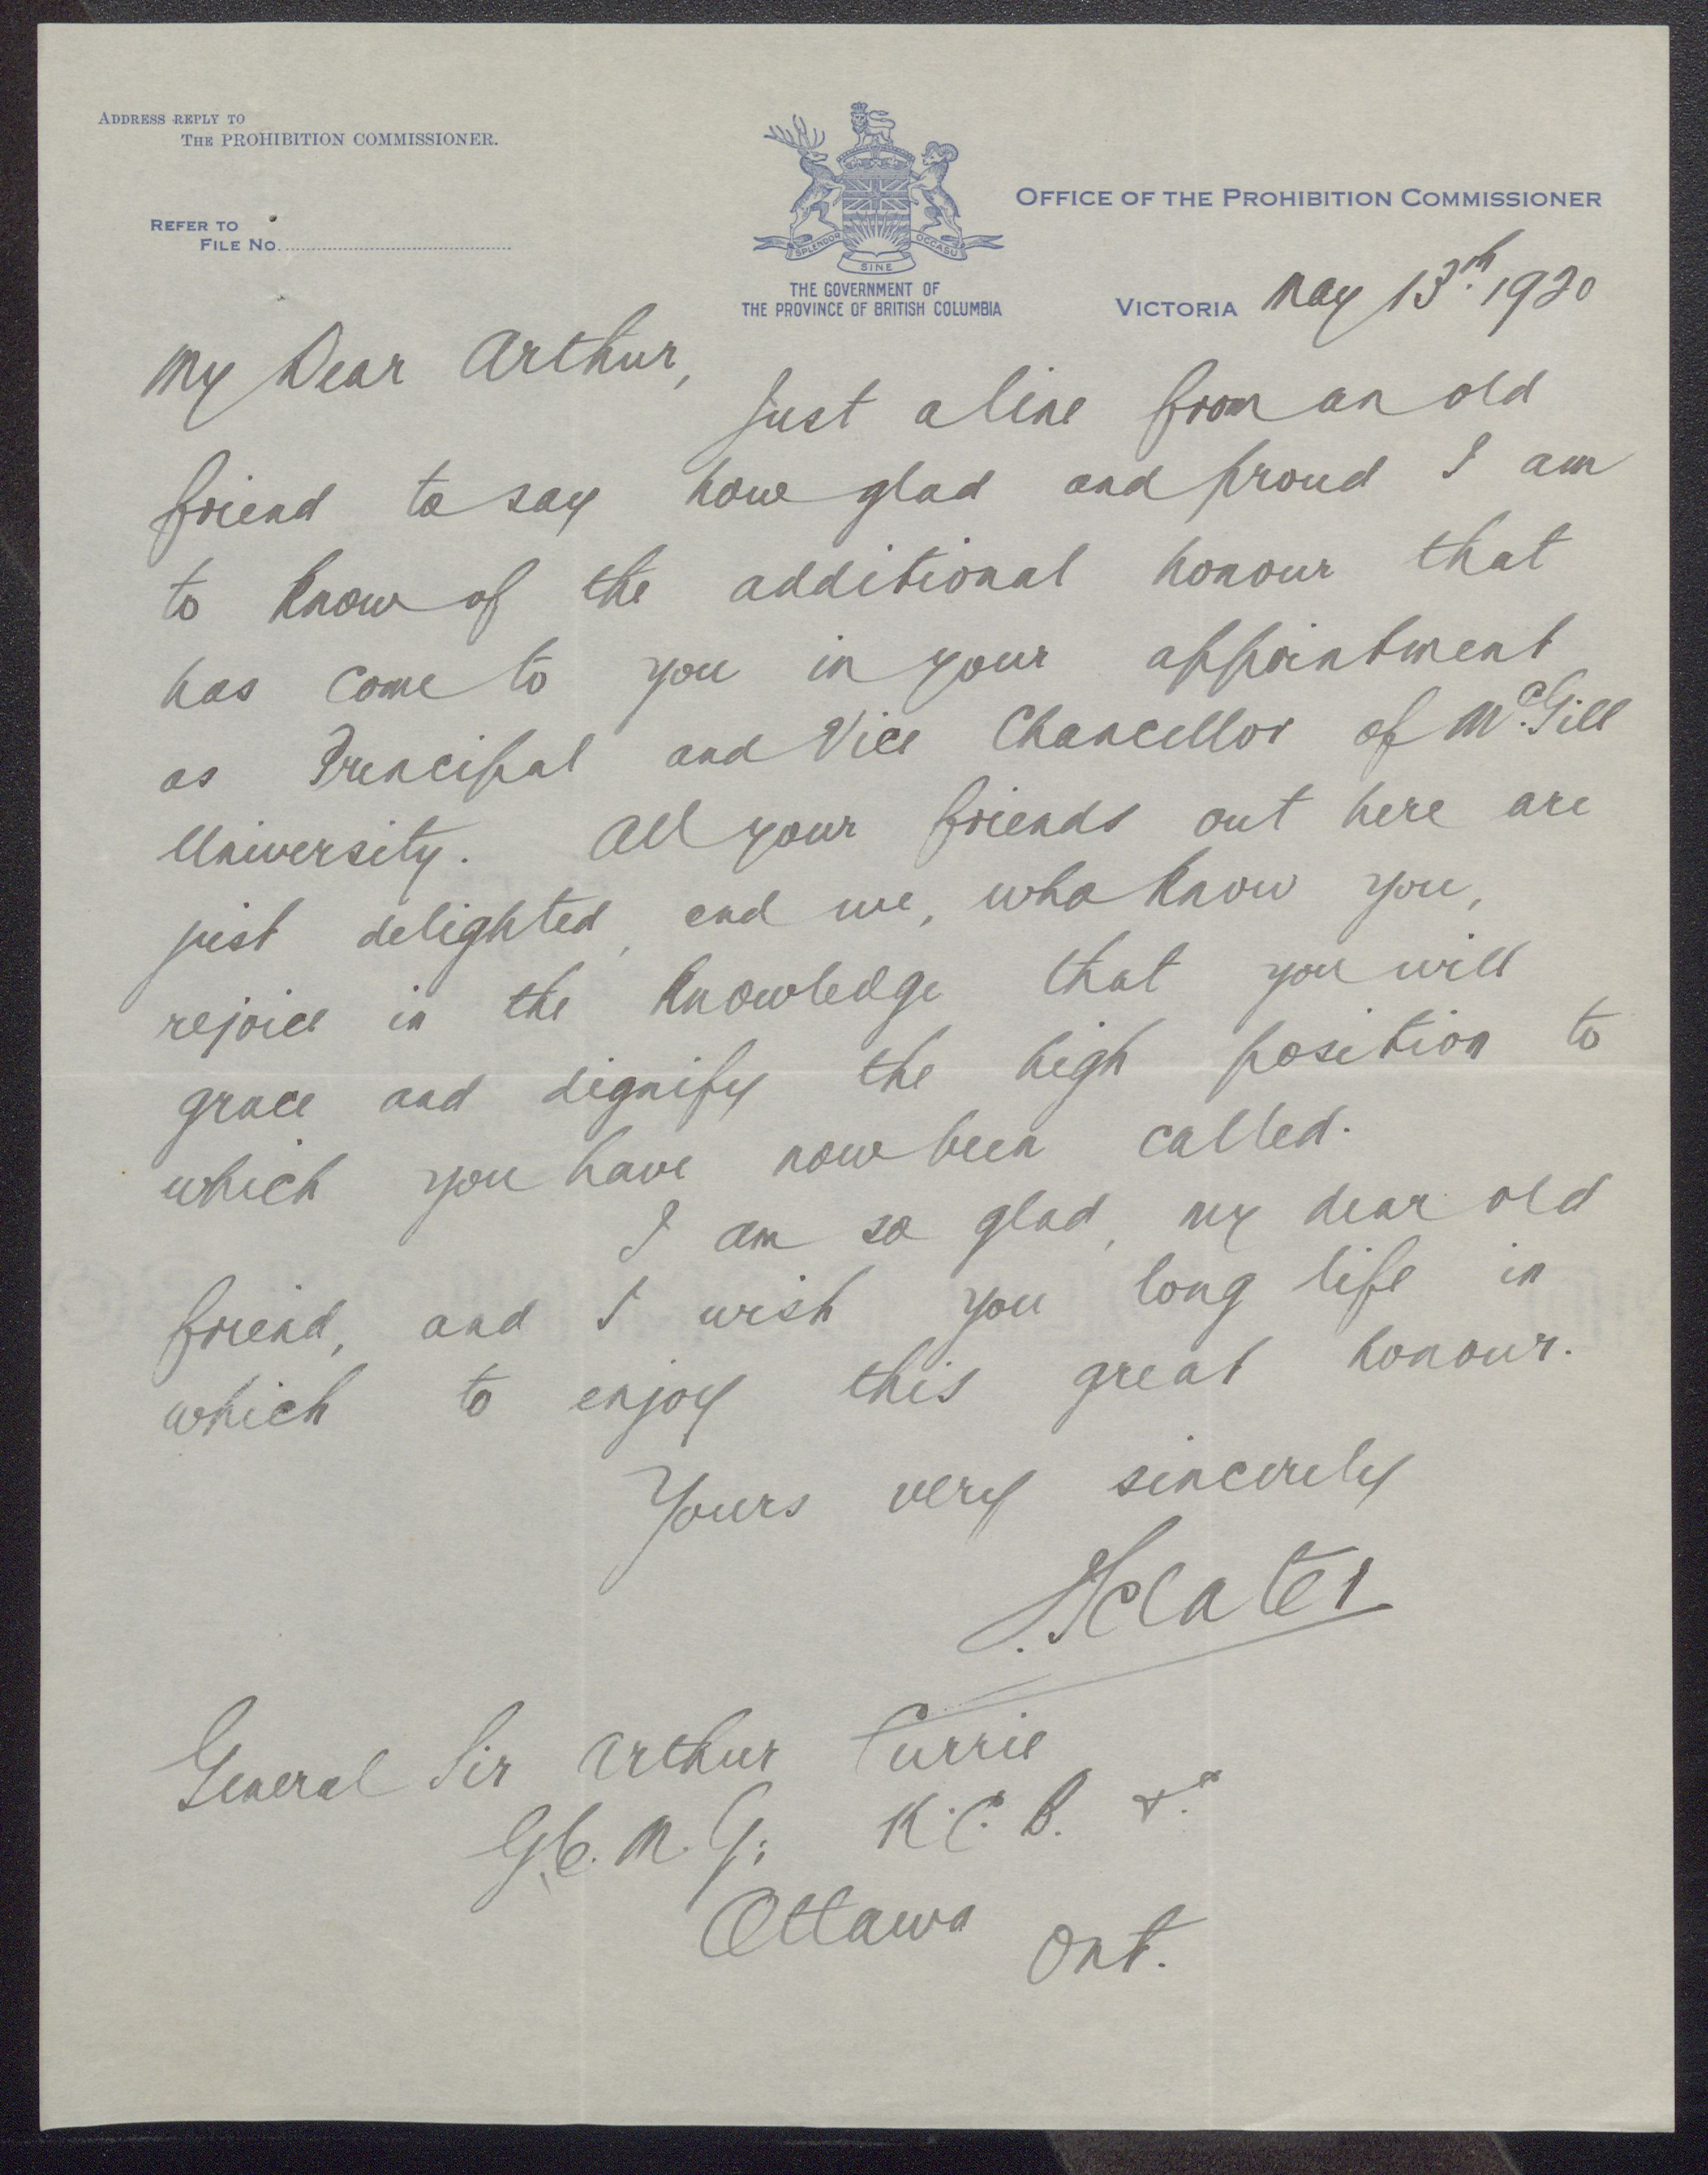 ADDRESS REPLY TO
THE PROHIBITION COMMISSIONER.
REFER TO
FILE NO.
SPLENDOR SINE OCCASU
THE GOVERNMENT OF
THE PROVINCE OF BRITISH COLUMBIA
OFFICE OF THE PROHIBITION COMMISSIONER
VICTORIA May 13th 1920
My Dear Arthur,
Just a line from an old
friend to say how glad and proud I am
to know of the additional honour that
has come to you in your appointment
as Principal and Vice Chancellor of McGill
University. All your friends out here are
just delighted, and we, who know you,
rejoice in the knowledge that you will
grace and dignify the high position to
which you have now been called.
I am so glad, my dear old
friend, and I wish you long life in
which to enjoy this great honour.
Yours very sincerely
Sclater
General Sir Arthur Currie
G.C.M.G; K.C.B. &c
Ottawa Ont.